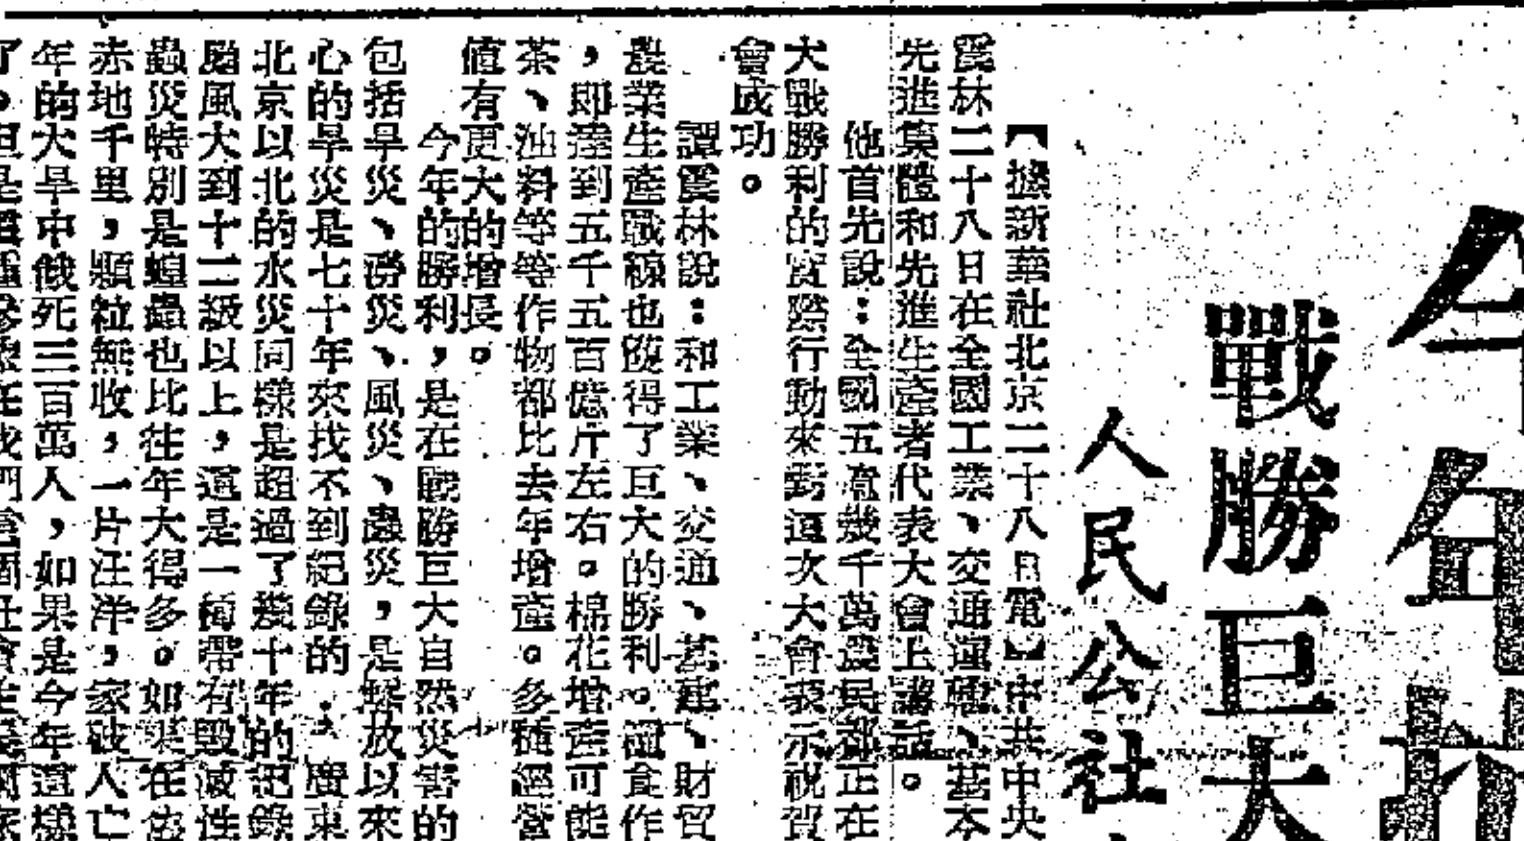 今年
戰勝巨大
人民公社
【據新華社北京二十八日電】中共中央
震林二十八日在全國工業、交通運輸、基本
先進集體和先進生產者代表大會上講話。
他首先說：全國五億幾千萬農民都正在
大戰勝利的實際行動來對這次大會表示祝賀
會成功。
譚震林說：和工業、交通、基建、財貿
農業生產戰線也獲得了巨大的勝利。糧食作
，即達到五千五百億斤左右。棉花增產可能
茶、油料等等作物都比去年增產。多種經營
值有更大的增長。
今年的勝利，是在戰勝巨大自然災害的
包括旱災、澇災、風災、蟲災，是解放以來
心的旱災是七十年來找不到紀錄的 廣東
北京以北的水災同樣是超過了幾十年的紀錄
颱風大到十二級以上，這是一種帶有毀滅性
蟲災特別是蝗蟲也比往年大得多。如果在
赤地千里，顆粒無收，一片汪洋，家破人亡
年的大旱中餓死三百萬人，如果是今年這樣
了。但是